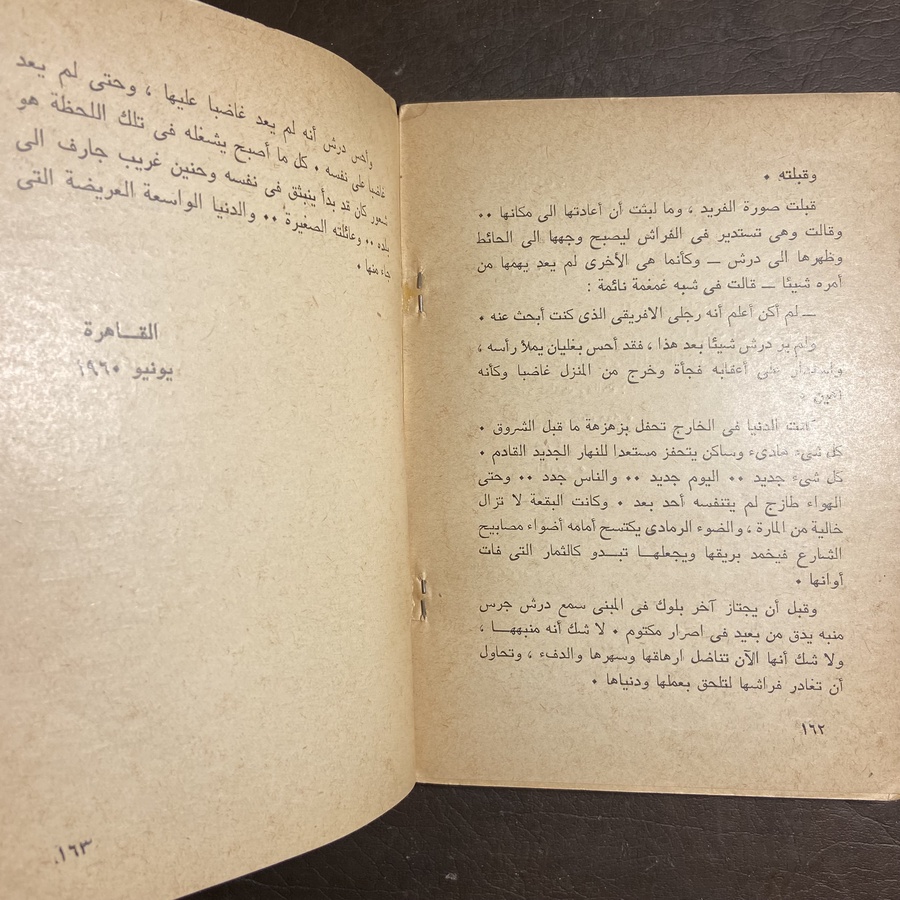 وقبلته ٠
قبلت صورة الفريد ، وما لبثت أن أعادتها الى مكانها ٠٠
وقالت وهى تستدير فى الفراش ليصبح وجهها الى الحائط
وظهرها الى درش ــ وكأنما هى الأخرى لم يعد يهمها من
أمره شيئا ــ قالت فى شبه غمغمة نائمة :
ــ لم أكن أعلم أنه رجلى الافريقى الذى كنت أبحث عنه ٠
ولم ير درش شيئا بعد هذا ، فقد أحس بغليان يملأ رأسه ،
واستدار على أعقابه فجأة وخرج من المنزل غاضبا وكأنه
أهين ٠
كانت الدنيا فى الخارج تحفل بزهزهة ما قبل الشروق ٠
كل شىء هادىء وساكن يتحفز مستعدا للنهار الجديد القادم ٠
كل شىء جديد ٠٠ اليوم جديد ٠٠ والناس جدد ٠٠ وحتى
الهواء طازج لم يتنفسه أحد بعد ٠ وكانت البقعة لا تزال
خالية من المارة ، والضوء الرمادى يكتسح أمامه أضواء مصابيح
الشارع فيخمد بريقها ويجعلهــا تبــدو كالثمار التى فات
أوانها ٠
وقبل أن يجتاز آخر بلوك فى المبنى سمع درش جرس
منبه يدق من بعيد فى اصرار مكتوم ٠ لا شك أنه منبههــا ،
ولا شك أنها الآن تناضل ارهاقها وسهرها والدفء ، وتحاول
أن تغادر فراشها لتلحق بعملها ودنياها ٠
١٦٢
وأحس درش أنه لم يعد غاضبا عليها ، وحتى لم يعد
غاضبا على نفسه ٠ كل ما أصبح يشغله فى تلك اللحظة هو
شعور كان قد بدأ ينبثق فى نفسه وحنين غريب جارف الى
بلده ٠٠ وعائلته الصغيرة ٠٠ والدنيا الواسعة العريضة التى
جاء منها ٠
القــاهرة
يونيو ١٩٦٠
١٦٣